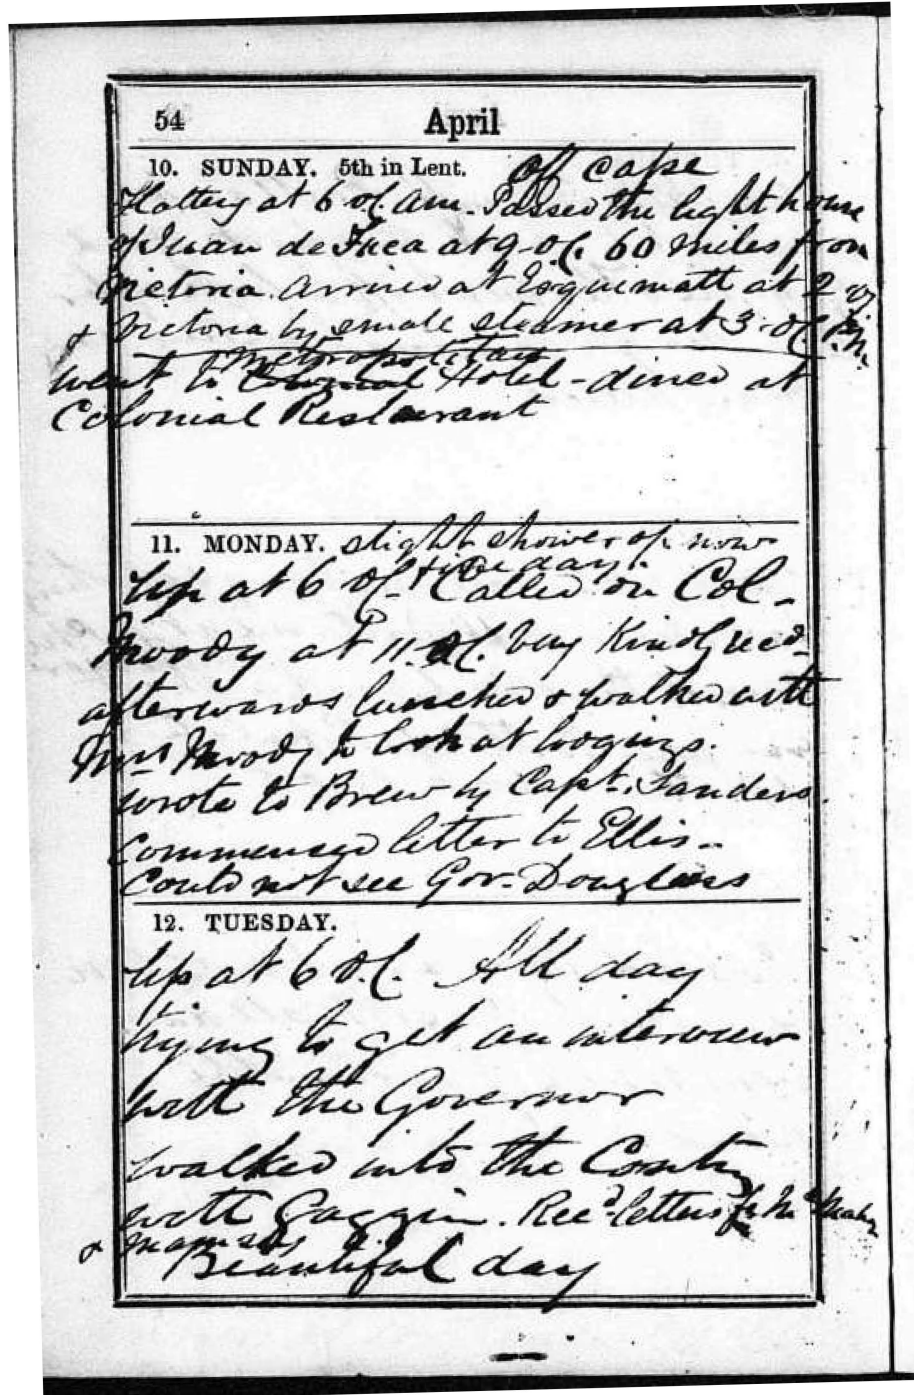 54 April
10. SUNDAY. 5th in Lent. off cape
Flattery at 6 o.C. am. Passed the light house
of Juan de Fuca at 9 o.C. 60 miles from
Victoria. arrived at Esquimatt at 2
& Victoria by small steamer at 3. o.C. P.M.
went to Metropolitan Hotel - dined at
Colonial Restaurant
11. MONDAY. slight shower of snow
& fine day.
Up at 6 o.C. Called on Col.
Moody at 11. o.C. very Kindly recd.
afterwards lunched & walked with
Mrs Moody to look at lodgings.
wrote to Brew by Capt. Sanders.
commenced letter to Ellis -
Could not see Gov. Douglas
12. TUESDAY.
Up at 6 o.C. All day
trying to get an interview
with the Governor
walked into the Country
with Gaggin. Recd letters fr
&
Beautiful day